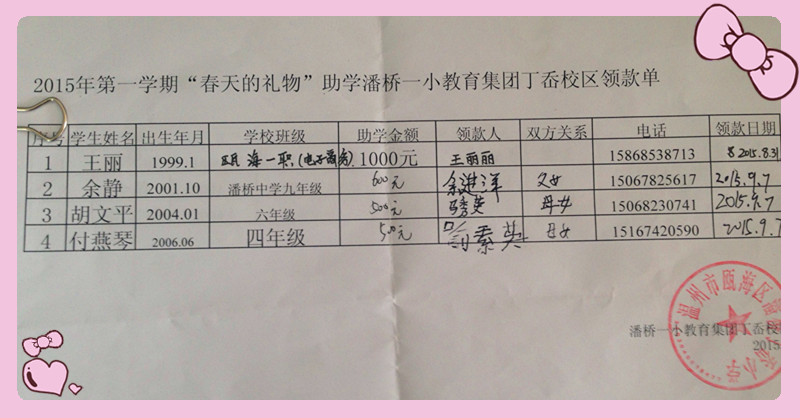 2015年第一学期“春天的礼物”助学潘桥一小教育集团丁岙校区领款单
序号 学生姓名 出生年月 学校班级 助学金额 领款人 双方关系 电话 领款日期
1 王丽 1999.1 瓯海一职(电子商务) 1000元 王丽丽 15868538713 2015.8.31
2 余静 2001.10 潘桥中学九年级 600元 余进洋 父女 15067825617 2015.9.7
3 胡文平 2004.01 六年级 500元 母女 15068230741 2015.9.7
4 付燕琴 2006.06 四年级 500元 素英 母女 15167420590 2015.9.7
温州市瓯海区 小学
潘桥一小教育集团丁岙校
2015